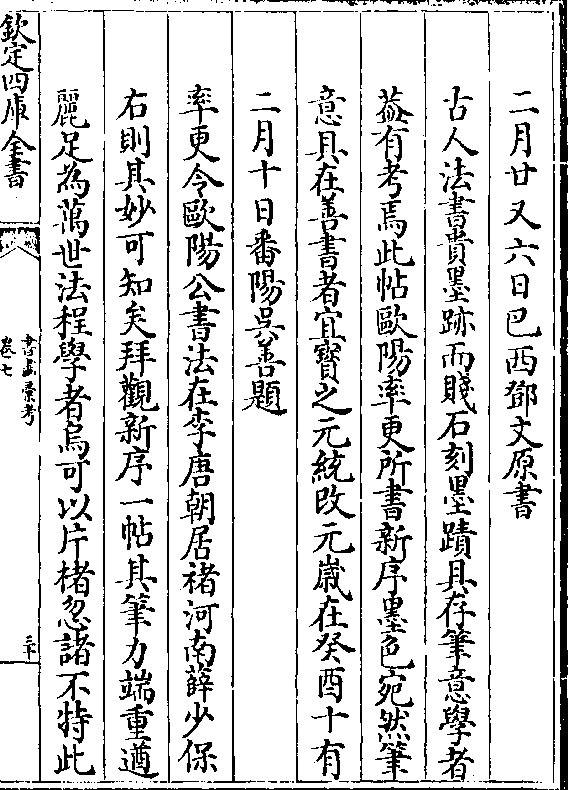 二月廿又六日巴西鄧文原書
古人法書貴墨跡而賤石刻墨蹟具存筆意學者
葢有考焉此帖歐陽率更所書新序墨色宛然筆
意具在善書者宜寶之元統改元歲在癸酉十有
二月十日番陽吳善題
率更令歐陽公書法在李唐朝居褚河南薛少保
右則其妙可知矣拜觀新序一帖其筆力端重遒
麗足為萬世法程學者烏可以片楮忽諸不特此
欽定四庫全書
書畫彚考
卷七
三十